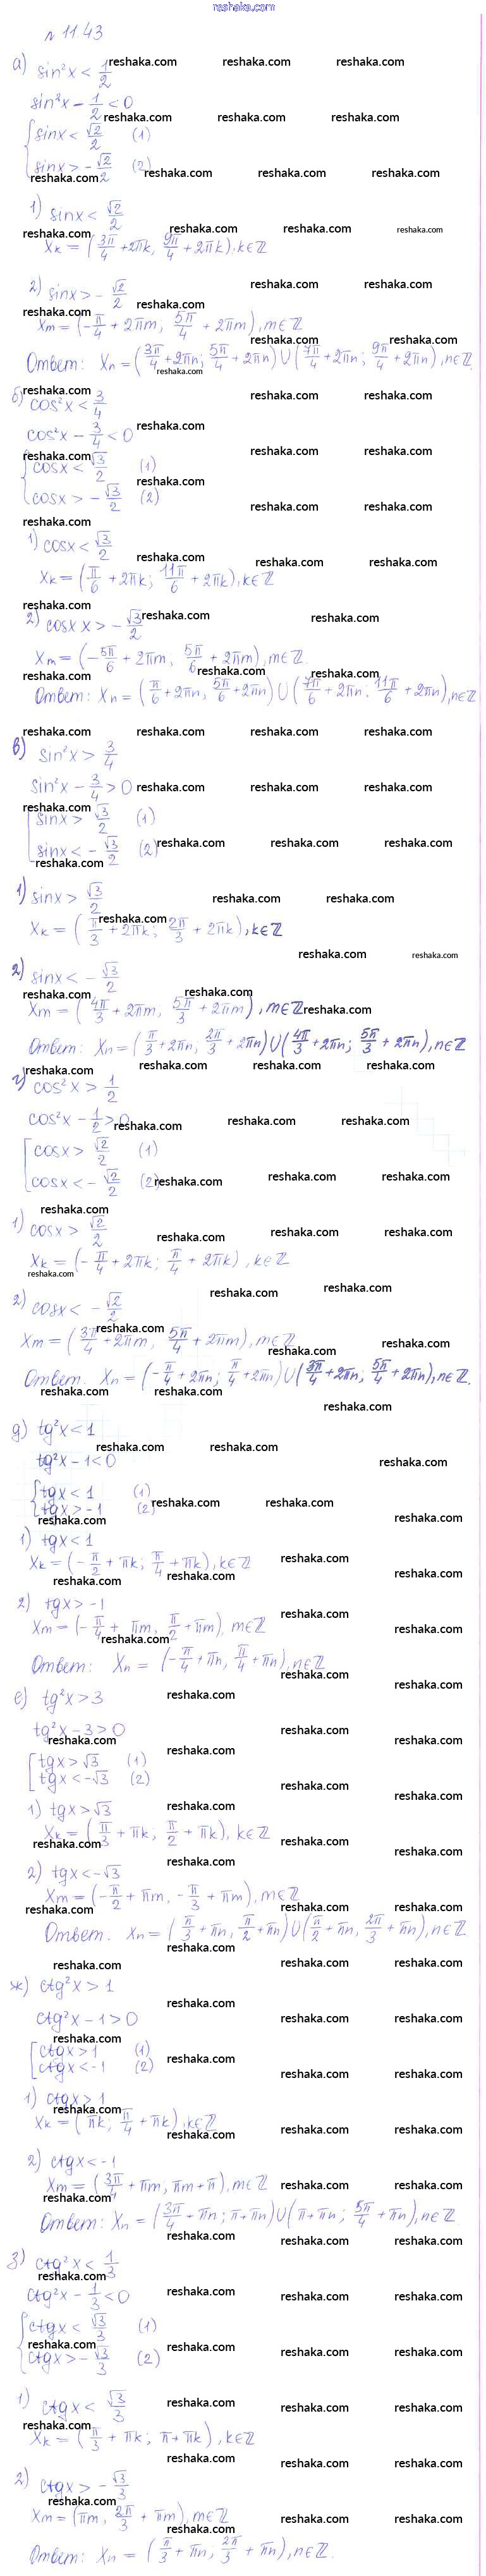 reshaka.com
№ 11.43
а) sin²x < 1/2
sin²x − 1/2 < 0
{ sinx < √2/2 (1)
sinx > −√2/2 (2)
1) sinx < √2/2
Xk = (3π/4 + 2πk, 9π/4 + 2πk), k∈ℤ
2) sinx > −√2/2
Xm = (−π/4 + 2πm; 5π/4 + 2πm), m∈ℤ
Ответ: Xn = (3π/4 + 2πn; 5π/4 + 2πn) ∪ (7π/4 + 2πn; 9π/4 + 2πn), n∈ℤ.
б) cos²x < 3/4
cos²x − 3/4 < 0
{ cosx < √3/2 (1)
cosx > −√3/2 (2)
1) cosx < √3/2
Xk = (π/6 + 2πk; 11π/6 + 2πk), k∈ℤ
2) cosx x > −√3/2
Xm = (−5π/6 + 2πm; 5π/6 + 2πm), m∈ℤ.
Ответ: Xn = (π/6 + 2πn, 5π/6 + 2πn) ∪ (7π/6 + 2πn; 11π/6 + 2πn), n∈ℤ
в) sin²x > 3/4
sin²x − 3/4 > 0
[ sinx > √3/2 (1)
sinx < −√3/2 (2)
1) sinx > √3/2
Xk = (π/3 + 2πk; 2π/3 + 2πk), k∈ℤ
2) sinx < −√3/2
Xm = (4π/3 + 2πm, 5π/3 + 2πm), m∈ℤ
Ответ: Xn = (π/3 + 2πn, 2π/3 + 2πn) ∪ (4π/3 + 2πn; 5π/3 + 2πn), n∈ℤ
г) cos²x > 1/2
cos²x − 1/2 > 0
[ cosx > √2/2 (1)
cosx < −√2/2 (2)
1) cosx > √2/2
Xk = (−π/4 + 2πk; π/4 + 2πk), k∈ℤ
2) cosx < −√2/2
Xm = (3π/4 + 2πm, 5π/4 + 2πm), m∈ℤ
Ответ: Xn = (−π/4 + 2πn; π/4 + 2πn) ∪ (3π/4 + 2πn; 5π/4 + 2πn), n∈ℤ.
д) tg²x < 1
tg²x − 1 < 0
{ tgx < 1 (1)
tgx > −1 (2)
1) tgx < 1
Xk = (−π/2 + πk; π/4 + πk), k∈ℤ
2) tgx > −1
Xm = (−π/4 + πm, π/2 + πm), m∈ℤ
Ответ: Xn = (−π/4 + πn, π/4 + πn), n∈ℤ
е) tg²x > 3
tg²x − 3 > 0
[ tgx > √3 (1)
tgx < −√3 (2)
1) tgx > √3
Xk = (π/3 + πk; π/2 + πk), k∈ℤ
2) tgx < −√3
Xm = (−π/2 + πm, −π/3 + πm), m∈ℤ
Ответ. Xn = (π/3 + πn, π/2 + πn) ∪ (π/2 + πn, 2π/3 + πn), n∈ℤ
ж) ctg²x > 1
ctg²x − 1 > 0
[ ctgx > 1 (1)
ctgx < −1 (2)
1) ctgx > 1
Xk = (πk; π/4 + πk), k∈ℤ
2) ctgx < −1
Xm = (3π/4 + πm, πm + π), m∈ℤ
Ответ: Xn = (3π/4 + πn; π + πn) ∪ (π + πn; 5π/4 + πn), n∈ℤ
з) ctg²x < 1/3
ctg²x − 1/3 < 0
{ ctgx < √3/3 (1)
ctgx > −√3/3 (2)
1) ctgx < √3/3
Xk = (π/3 + πk; π + πk), k∈ℤ
2) ctgx > −√3/3
Xm = (πm, 2π/3 + πm), m∈ℤ
Ответ: Xn = (π/3 + πn; 2π/3 + πn), n∈ℤ.